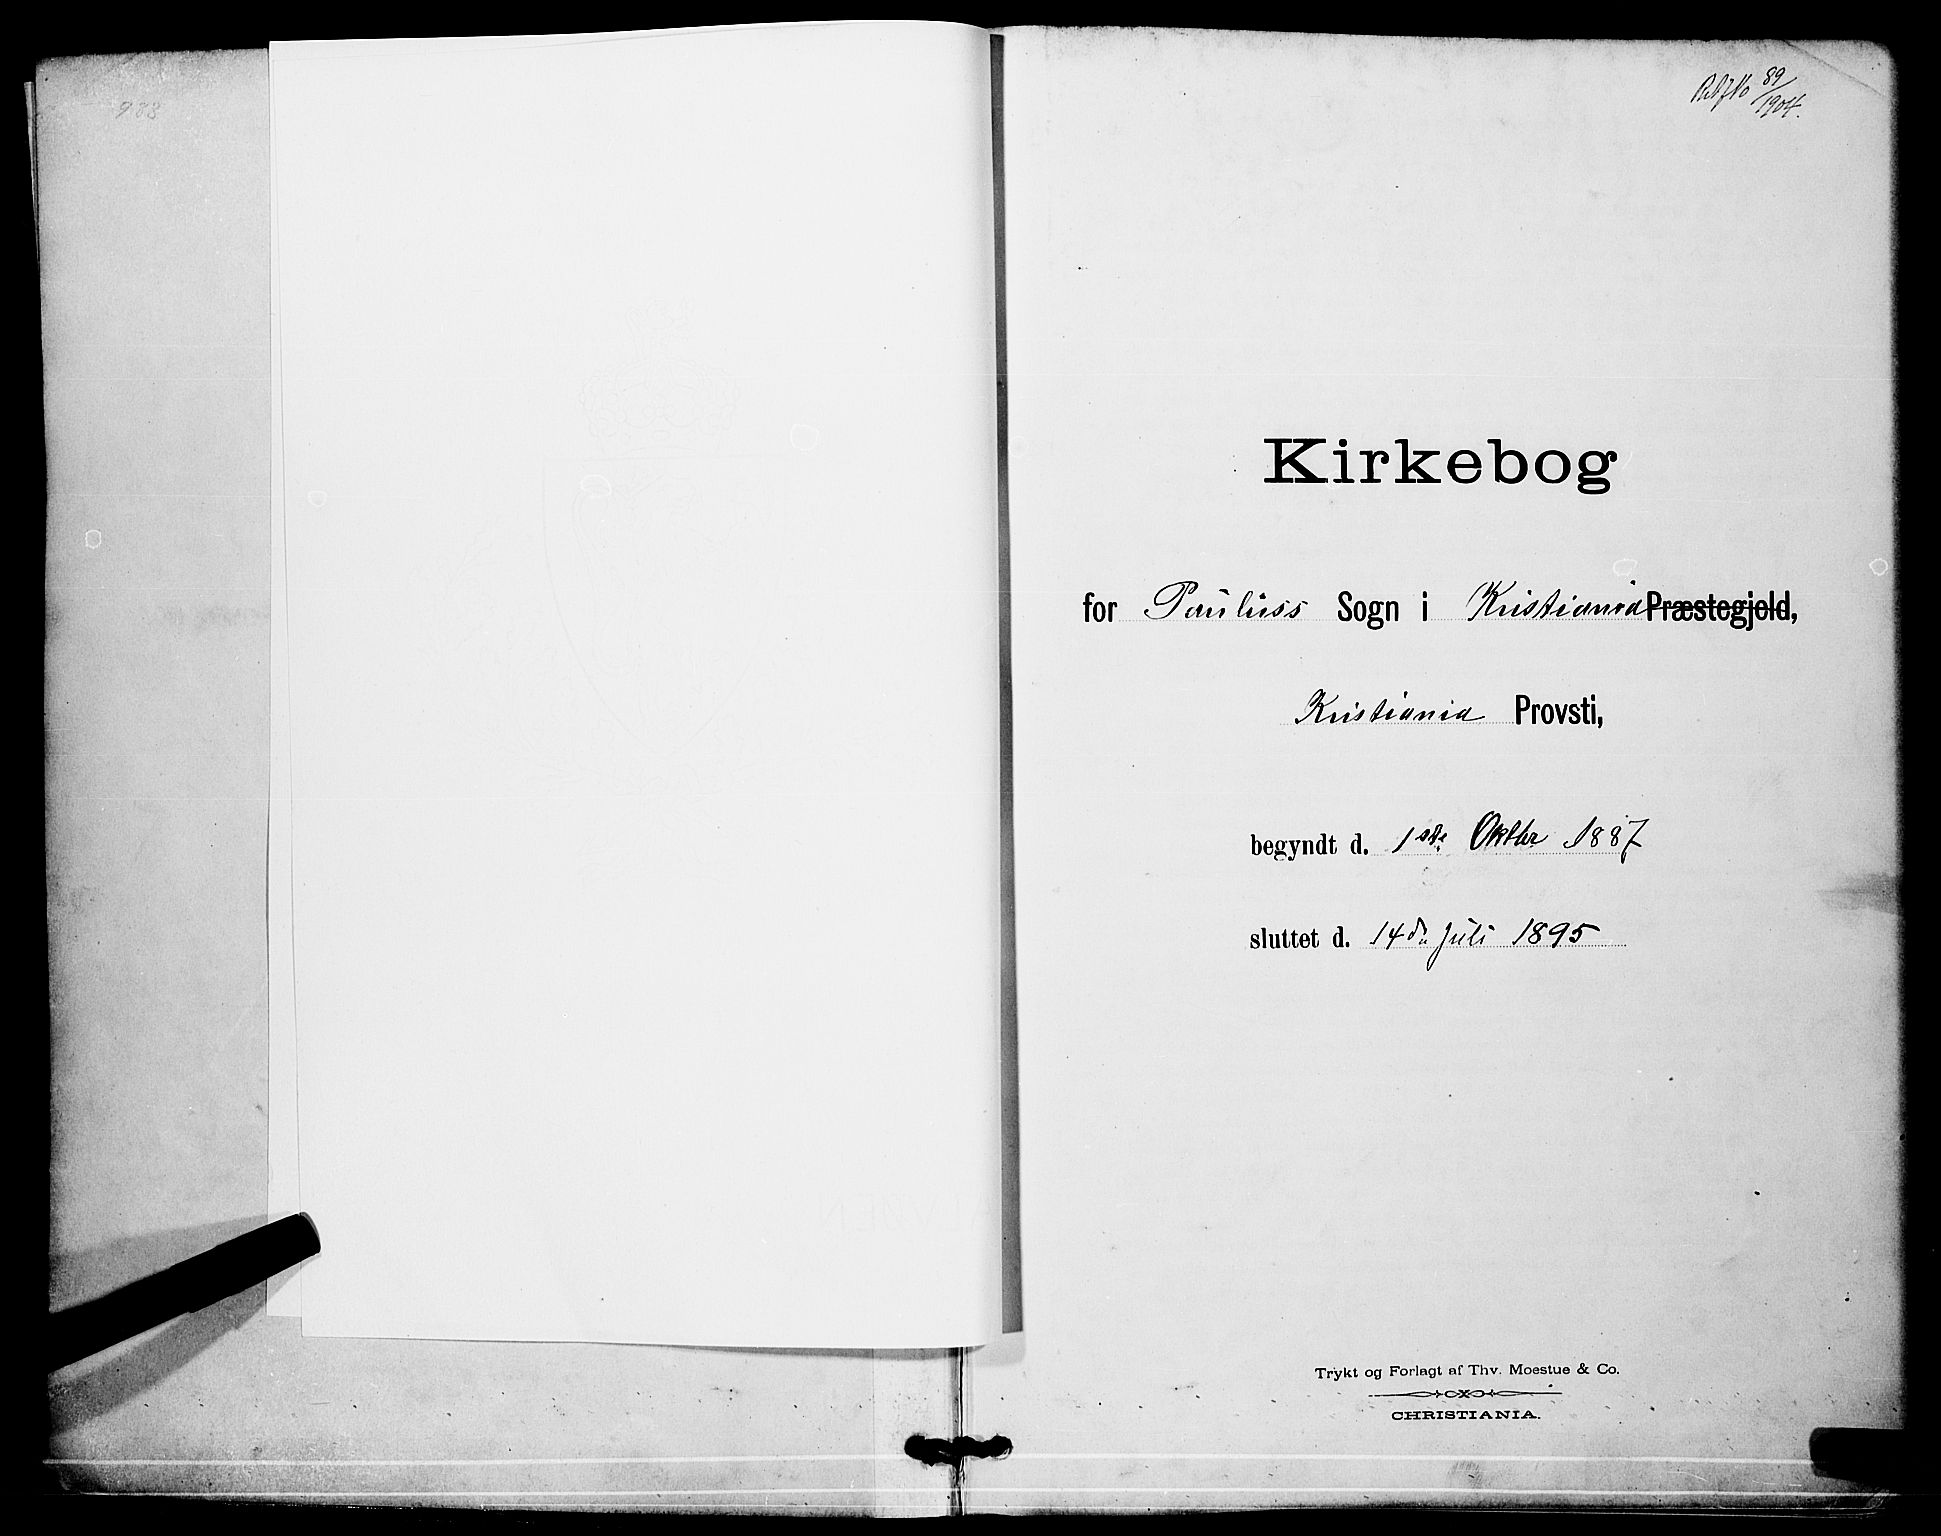 988
89/1904.
Kirkebog
for Pauluss Sogn i Kristiania Præstegjeld,
Kristiania Provsti,
begyndt d. 1ste Oktbr 1887
sluttet d. 14de Juli 1895
Trykt og Forlagt af Thv. Moestue & Co.
CHRISTIANIA.